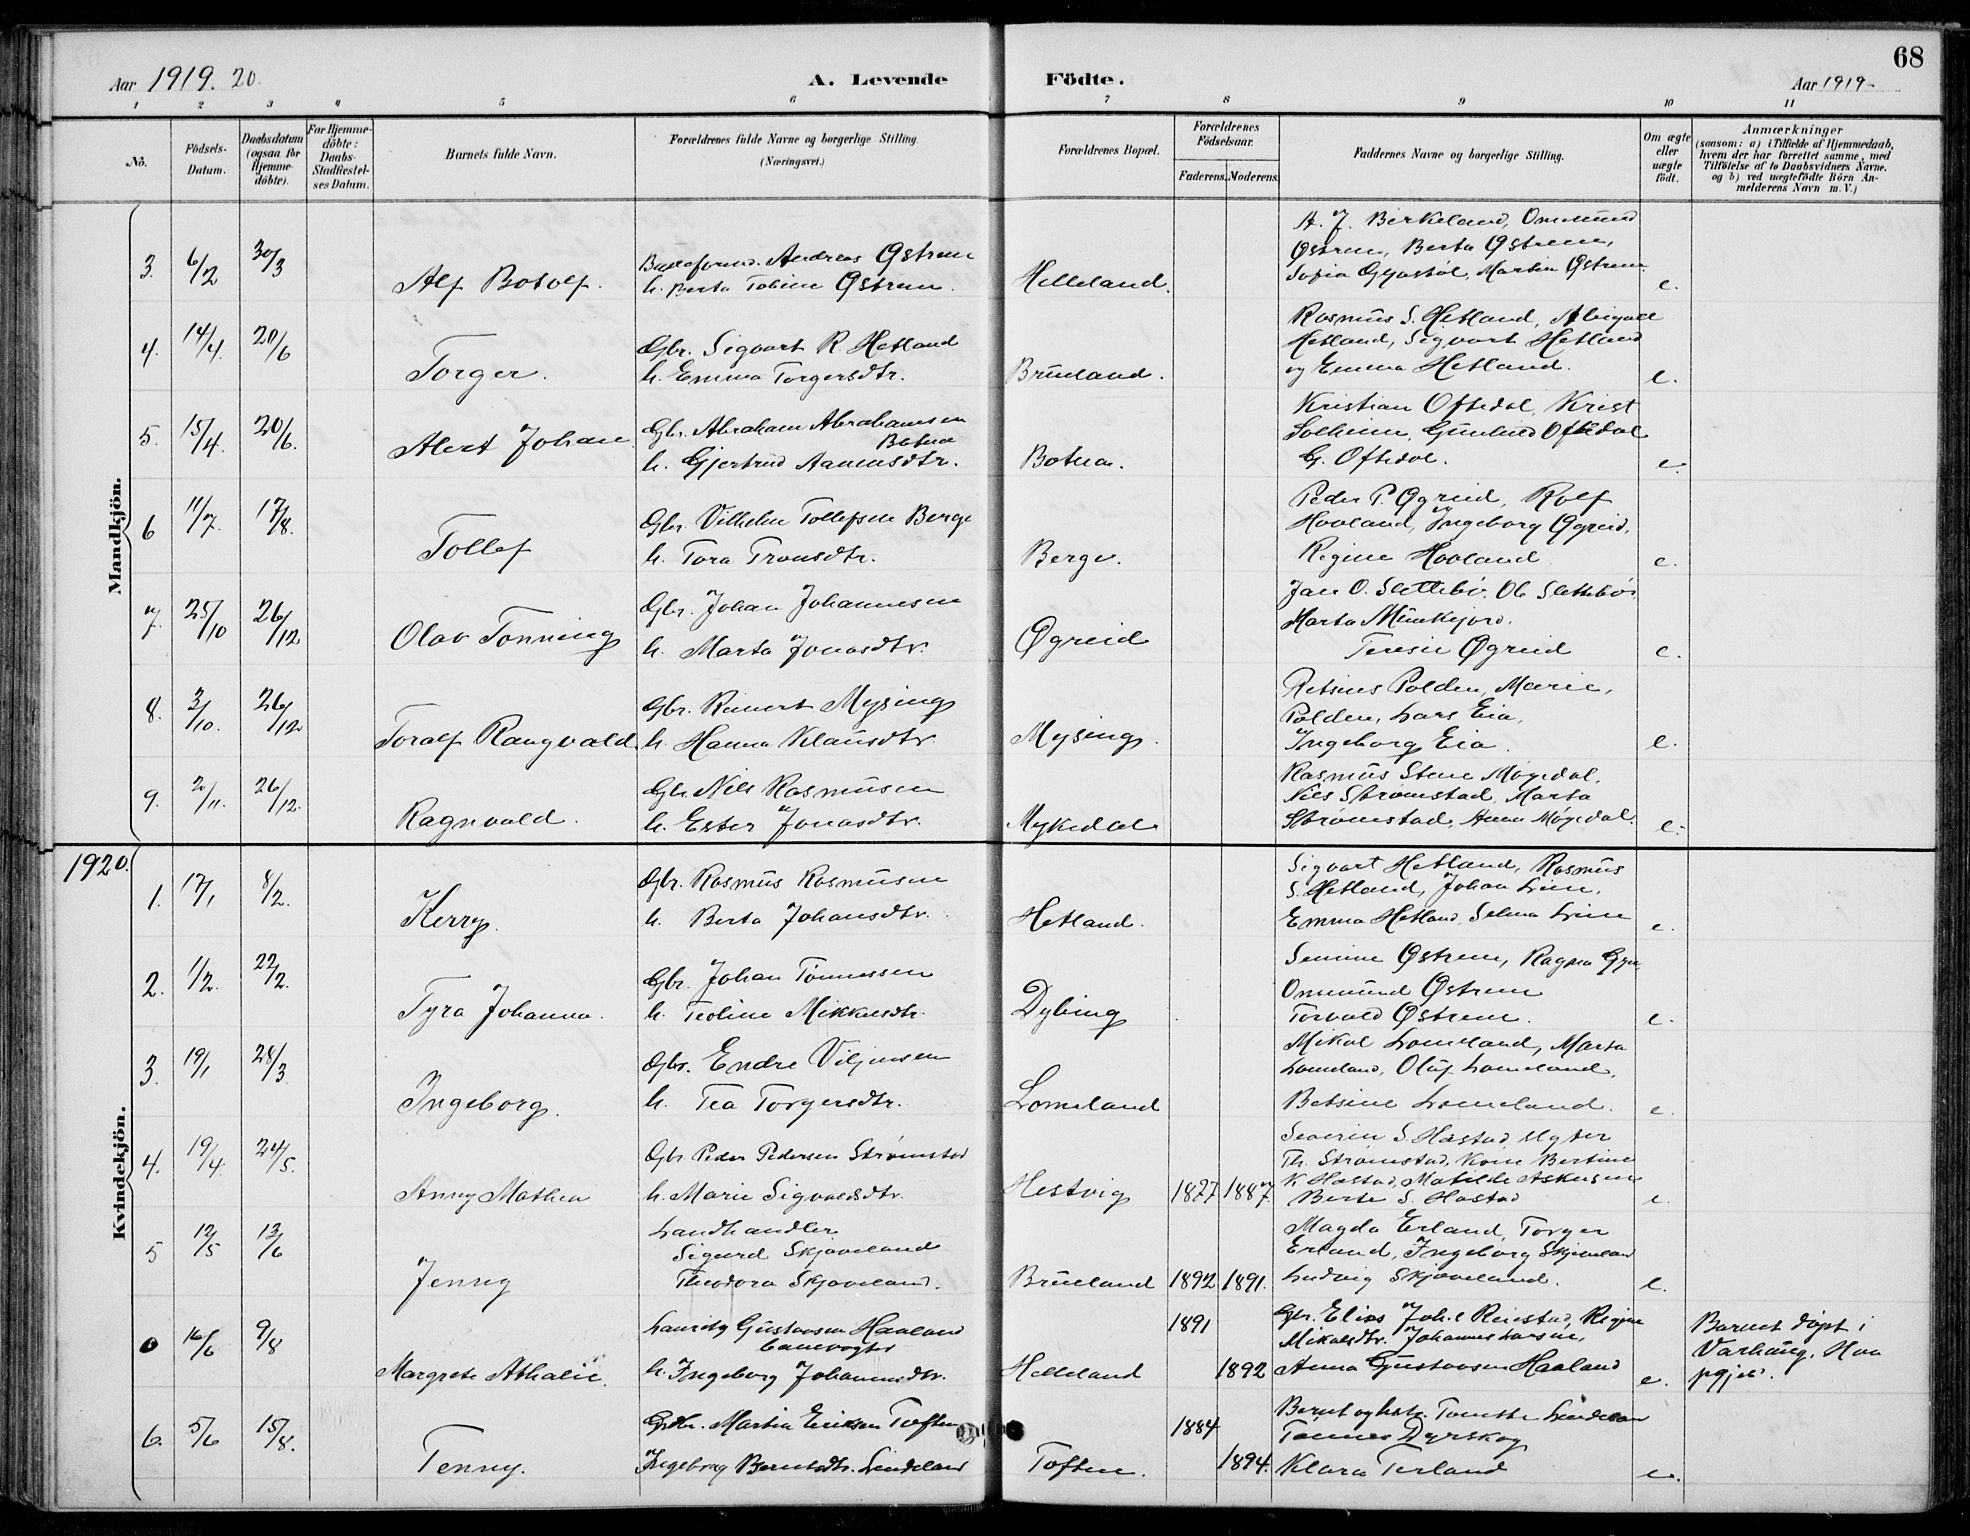 68
Aar 1919. 20.
A. Levende Födte.
Aar 1919-
1 2 3 4 5 6 7 8 9 10 11
No.
Födsels-Datum.
Daabsdatum (ogsaa for Hjemme-döbte).
For Hjemme-döbte: Daabs-Stadfæstel-ses Datum.
Barnets fulde Navn.
Forældrenes fulde Navne og borgerlige Stilling.
(Næringsvei.)
Forældrenes Bopæl.
Forældrenes Födselsaar.
Faderens. Moderens.
Faddernes Navne og borgerlige Stilling.
Om ægte eller uægte födt.
Anmærkninger
(saasom: a) i Tilfælde af Hjemmedaab,
hvem der har forrettet samme, med
Tilföielse af to Daabsvidners Navne.
og b) ved uægtefödte Börn An-
melderens Navn m. V.)
Mandkjön.
3. 6/2 30/3 Alf Botolf.
Andreas Østrem
h. Berta Tobine Østrem.
Helleland.
A. J. Birkeland, Ommund
Østrem, Berta Østrem,
Sofia Gyastøl, Martin Østrem
e.
4. 14/4. 20/6 Torger.
Gbr. Sigvart R Hetland
h. Emma Torgersdtr.
Brueland.
Rasmus S. Hetland, Abigael
Hetland, Sigvart Hetland
og Emma Hetland.
e.
5. 15/4. 20/6. Alert Johan
Gbr. Abraham Abrahamsen
Botnen
h. Gjertrud Aamundsdtr.
Kristian Oftedal, Krist
Solheim, Gunhild Oftedal
G. Oftedal.
e.
6 11/7. 17/8. Tollef
Gbr. Vilhelm Tollefsen Berge
h. Tora Tronsdtr.
Berge.
Peder P. Øgreid, Rolf
Hovland, Ingeborg Øgreid,
Regine Hovland
e.
7. 25/10 26/12 Olav Tonning
Gbr. Johan Johannesen
h. Marta Jonasdtr.
Øgreid
Jan O. Slettebø. Ole Slettebø
Marta Munkejord.
Teresie Øgreid
e.
8. 3/10. 26/12 Toralf Rangvald
Gbr. Reinert Mysing
h. Hanna Klausdtr.
Mysing.
Polden, Marie,
Polden, Lars Eia,
Ingeborg Eia.
e.
9. 2/11. 26/12. Ragnvald.
Gbr Nils Rasmusen
h. Ester Jonasdtr.
Mykedal
Rasmus Stene Møgedal.
Nils Strømstad, Marta
Strømstad, Anna Møgedal.
e.
1920.
Kvindekjön.
1. 17/1 8/2. Kerry.
Gbr. Rasmus Rasmusen
h. Berta Johansdtr.
Hetland.
Sigvart Hetland, Rasmus
S. Hetland, Johan Lien,
Emma Hetland, Selma Lien
e.
2. 1/2. 22/2. Tyra Johanna.
Gbr. Johan Tønnessen
h. Teoline Mikkelsdtr.
Dybing
Semine Østrem, Ragna Gya,
Ommund Østrem
Torvald Østrem.
e.
3. 19/1 28/3 Ingeborg.
Gbr. Endre Viljamsen
h. Tea Torgersdtr.
Lomeland
Mikal Lomeland, Marta
Lomeland, Oluf Lomeland,
Betsine Lomeland.
e.
4. 19/4. 24/5. Anny Mathea
Gbr Peder Pedersen Strømstad
h. Marie Sigvaldsdtr.
Hestvig 1827 1887
Severin S Hæstad
Th. Strømstad, Kone Bertine
K Hæstad, Matilde Askersen
Berte S. Hæstad
e.
5 12/5 13/6 Jenny
Landhandler
Sigurd Skjæveland
Theodora Skjæveland.
Brueland 1892 1891.
Magda Erland, Torger
Erland, Ingeborg Skjæveland
Ludvig Skjæveland.
e.
0 16/6 9/8 Margrete Athalie.
Lauritz Gustavsen Haaland
Banevogter
h. Ingeborg Johannesdtr.
Helleland
1891
1892
Gbr. Elias Joh.s Reiestad, Regine
Mikalsdtr. Johannes Larsen,
Anna Gustavsen Haaland
e.
Barnet døpt i
Varhaug, Haa
pgjeld.
6. 5/6 15/8. Tenny.
Gbr. Martin Eriksen Toften
Ingeborg Berntsdtr. Lindeland
Toften.
1884
1894.
Tønnes Dyrskog
Klara Terland
e.